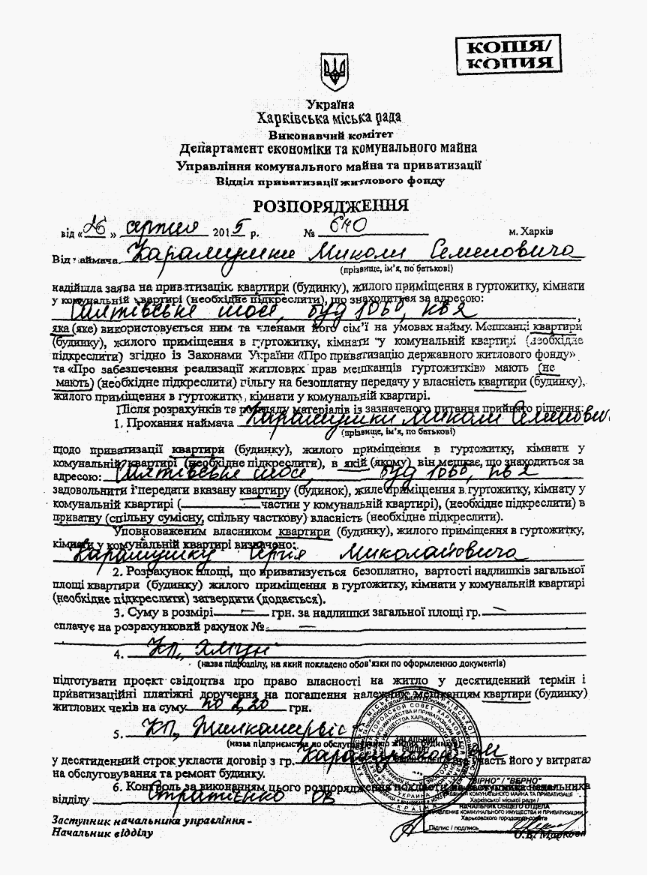 КОПІЯ/
КОПИЯ
Україна
Харківська міська рада
Виконавчий комітет
Департамент економіки та комунального майна
Управління комунального майна та приватизації
Відділ приватизації житлового фонду
РОЗПОРЯДЖЕННЯ
від «26» серпня 2015 р. № 640 м. Харків
Від наймача Карамушки Миколи Семеновича
(прізвище, ім'я, по батькові)
надійшла заява на приватизацію квартири (будинку), жилого приміщення в гуртожитку, кімнати
у комунальній квартирі (необхідне підкреслити), що знаходиться за адресою:
шосе, буд 105б, кв
яка (яке) використовується ним та членами його сім'ї на умовах найму. Мешканці квартири
(будинку), жилого приміщення в гуртожитку, кімнати у комунальній квартирі (необхідне
підкреслити) згідно із Законами України «Про приватизацію державного житлового фонду»
та «Про забезпечення реалізації житлових прав мешканців гуртожитків» мають (не
мають) (необхідне підкреслити) пільгу на безоплатну передачу у власність квартири (будинку),
жилого приміщення в гуртожитку, кімнати у комунальній квартирі.
Після розрахунків та розгляду матеріалів із зазначеного питання прийнято рішення:
1. Прохання наймача Карамушки Миколи Семенович
(прізвище, ім'я, по батькові)
щодо приватизації квартири (будинку), жилого приміщення в гуртожитку, кімнати у
комунальній квартирі (необхідне підкреслити), в якій (якому) він мешкає, що знаходиться за
адресою: шосе, буд 105б, кв
задовольнити і передати вказану квартиру (будинок), жиле приміщення в гуртожитку, кімнату у
комунальній квартирі ( частин у комунальній квартирі), (необхідне підкреслити) в
приватну (спільну сумісну, спільну часткову) власність (необхідне підкреслити).
Уповноваженим власником квартири (будинку), жилого приміщення в гуртожитку,
кімнати у комунальній квартирі визначено:
Карамушку Миколайовича
2. Розрахунок площі, що приватизується безоплатно, вартості надлишків загальної
площі квартири (будинку) жилого приміщення в гуртожитку, кімнати у комунальній квартирі
(необхідне підкреслити) затвердити (додається).
3. Суму в розмірі — грн. за надлишки загальної площі гр. —
сплачує на розрахунковий рахунок № —
4. КП
(назва підрозділу, на який покладено обов'язки по оформленню документів)
підготувати проект свідоцтва про право власності на житло у десятиденний термін і
приватизаційні платіжні доручення на погашення належних мешканцям квартири (будинку)
житлових чеків на суму по 2,20 грн.
5. КП „Жилкомсервіс"
(назва підприємства по обслуговуванню жилих будинків)
у десятиденний строк укласти договір з гр. участь його у витратах
на обслуговування та ремонт будинку.
6. Контроль за виконанням цього розпорядження покласти на заступника начальника
відділу
Заступник начальника управління -
Начальник відділу
"ВІРНО" / "ВЕРНО"
Підпис / подпись